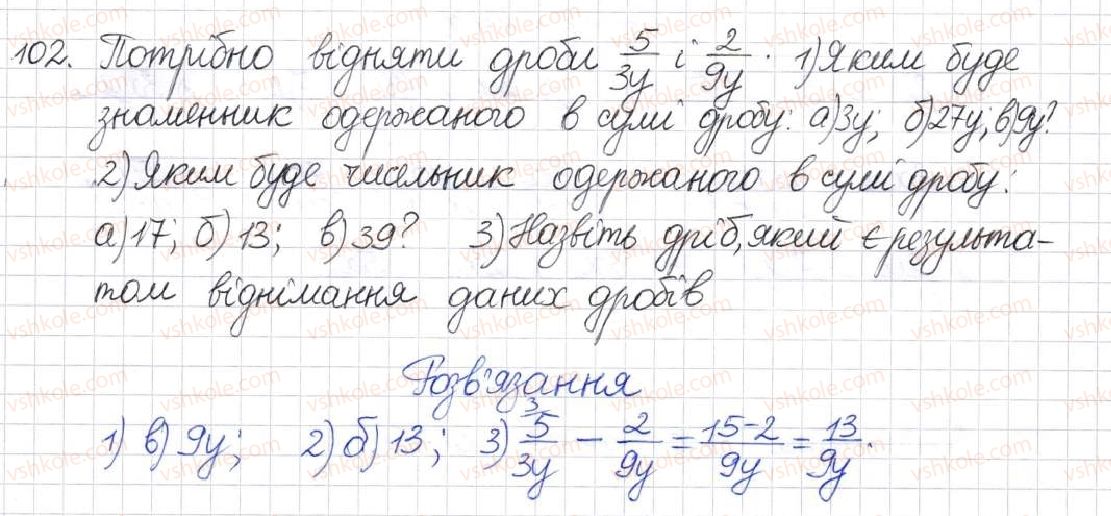 102. Потрібно відняти дроби 5/3y і 2/9y. 1) Яким буде
знаменник одержаного в сумі дробу: а) 3y; б) 27y; в) 9y?
2) Яким буде чисельник одержаного в сумі дробу:
а) 17; б) 13; в) 39? 3) Назвіть дріб, який є результа-
том віднімання даних дробів
Розв'язання
1) в) 9y; 2) б) 13; 3) ³5/3y - 2/9y = 15-2/9y = 13/9y.